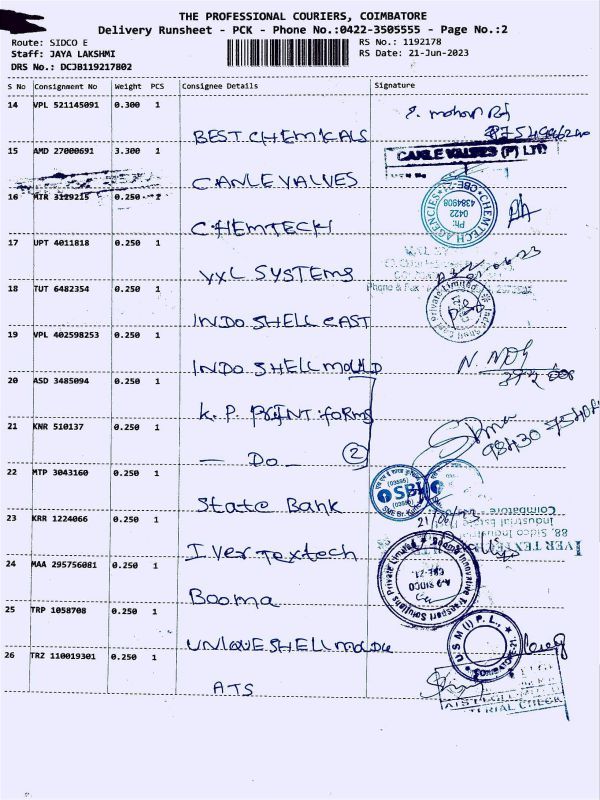 THE PROFESSIONAL COURIERS, COIMBATORE
Delivery Runsheet - PCK - Phone No.:0422-3505555 - Page No.:2
Route: SIDCO E
RS No.: 1192178
Staff: JAYA LAKSHMI
RS Date: 21-Jun-2023
DRS No.: DCJB119217802
S No Consignment No Weight PCS Consignee Details Signature
14 VPL 521145091 0.300 1
BEST CHEMICALS
15 AMD 27000691 3.300 1
CANLE VALVES (P) LTD
CANLE VALVES
16 MTR 3129215 0.250 1
CHEMTECH AGENCIES CBE-2
Ph: 0422 4384908
CHEMTECH
17 UPT 4011818 0.250 1
VXL SYSTEMS
18 TUT 6482354 0.250 1
Phone & Fax
INDO SHELL CAST
19 VPL 402598253 0.250 1
INDO SHELL MOULD
20 ASD 3485094 0.250 1
K. P. PRINT forms
21 KNR 510137 0.250 1
98430
— Do — 2
22 MTP 3043160 0.250 1
SBI
State Bank
23 KRR 1224066 0.250 1
88, Sidco Industrial Estate
Coimbatore
IVER TEX
Iver Textech
24 MAA 295756081 0.250 1
Booma Innovative Transport Solutions Private Limited
A-9 SIDCO
CBE-21.
Booma
25 TRP 1058708 0.250 1
U S M (I) P. L.,
COIMBATORE-21
UNIQUE SHELL MOULD
26 TRZ 110019301 0.250 1
ATS